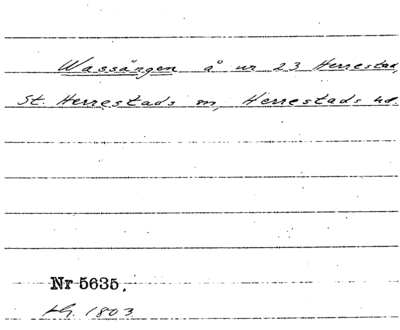 Wassängen å nr 23 Herrestad,
St. Herrestads sn, Herrestads hd.
Nr 5635.
LG. 1803